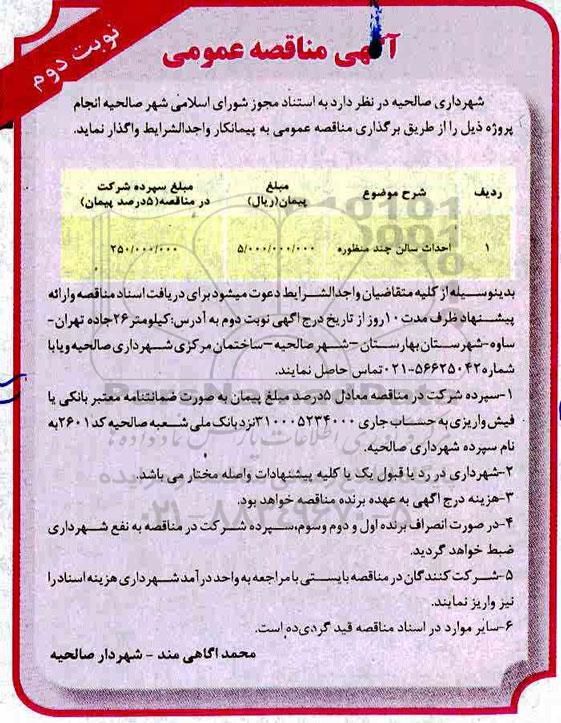 نوبت دوم
آگهی مناقصه عمومی
شهرداری صالحیه در نظر دارد به استناد مجوز شورای اسلامی شهر صالحیه انجام
پروژه ذیل را از طریق برگذاری مناقصه عمومی به پیمانکار واجدالشرایط واگذار نماید.
ردیف شرح موضوع مبلغ پیمان(ریال) مبلغ سپرده شرکت در مناقصه(۵درصد پیمان)
۱ احداث سالن چند منظوره ۵/۰۰۰/۰۰۰/۰۰۰ ۲۵۰/۰۰۰/۰۰۰
بدینوسیله از کلیه متقاضیان واجدالشرایط دعوت میشود برای دریافت اسناد مناقصه وارائه
پیشنهاد ظرف مدت ۱۰روز از تاریخ درج اگهی نوبت دوم به آدرس:کیلومتر۲۶جاده تهران-
ساوه-شهرستان بهارستان –شهرصالحیه –ساختمان مرکزی شهرداری صالحیه ویا با
شماره۵۶۶۲۵۰۴۲-۰۲۱تماس حاصل نمایند.
۱-سپرده شرکت در مناقصه معادل ۵درصد مبلغ پیمان به صورت ضمانتنامه معتبر بانکی یا
فیش واریزی به حساب جاری ۳۱۰۰۰۵۲۳۴۰۰۰نزدبانک ملی شعبه صالحیه کد۲۶۰۱به
نام سپرده شهرداری صالحیه.
۲-شهرداری در رد یا قبول یک یا کلیه پیشنهادات واصله مختار می باشد.
۳-هزینه درج اگهی به عهده برنده مناقصه خواهد بود.
۴-در صورت انصراف برنده اول و دوم وسوم،سپرده شرکت در مناقصه به نفع شهرداری
ضبط خواهد گردید.
۵-شرکت کنندگان در مناقصه بایستی با مراجعه به واحد در آمد شهرداری هزینه اسنادرا
نیز واریز نمایند.
۶-سایر موارد در اسناد مناقصه قید گردیده است.
محمد اگاهی مند - شهردار صالحیه